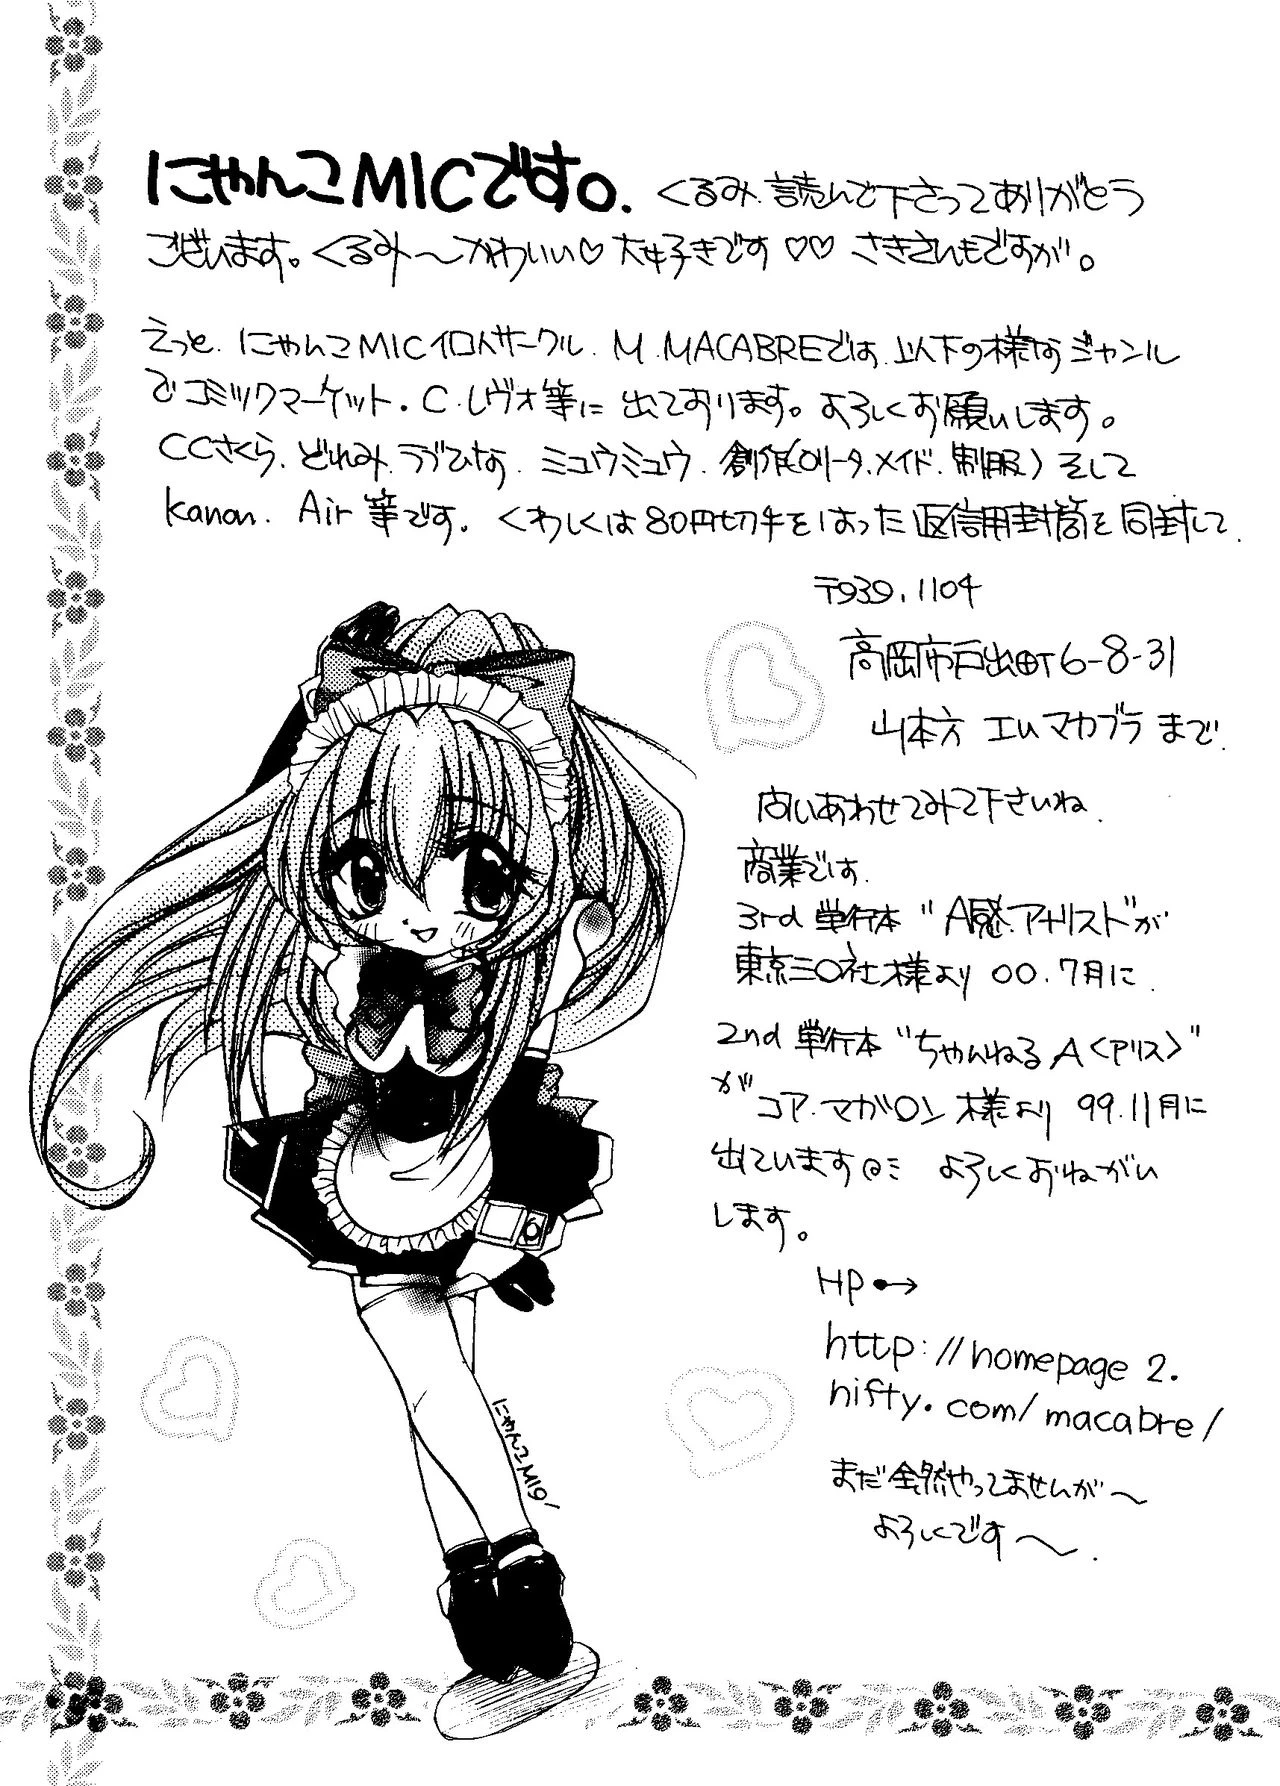 にゃんこMICです。くるみ、読んで下さってありがとう
ございます。くるみ〜かわいい♡大好きです♡♡ さきさんもですが。
えっと、にゃんこMIC個人サークル、M.MACABREでは、以下の様なジャンル
でコミックマーケット・C.レヴォ等に出ております。よろしくお願いします。
CCさくら、どれみ、ラブひな、ミュウミュウ、創作(ロリータ、メイド、制服)そして
kanon、Air等です。くわしくは80円切手をはった返信用封筒を同封して、
〒939.1104
高岡市戸出町6-8-31
山本方 エム マカブラ まで、
問いあわせてみて下さいね。
商業では、
3rd 単行本 "A感、アナリスト"が
東京三〇社様より 00.7月に、
2nd 単行本 "ちゃんねるA<アリス>"
が コア・マガジン様より 99.11月に
出ています よろしくおねがい
します。
HP→
http://homepage2.
nifty.com/macabre/
まだ全然やってませんが〜
よろしくです〜.
にゃんこMIC